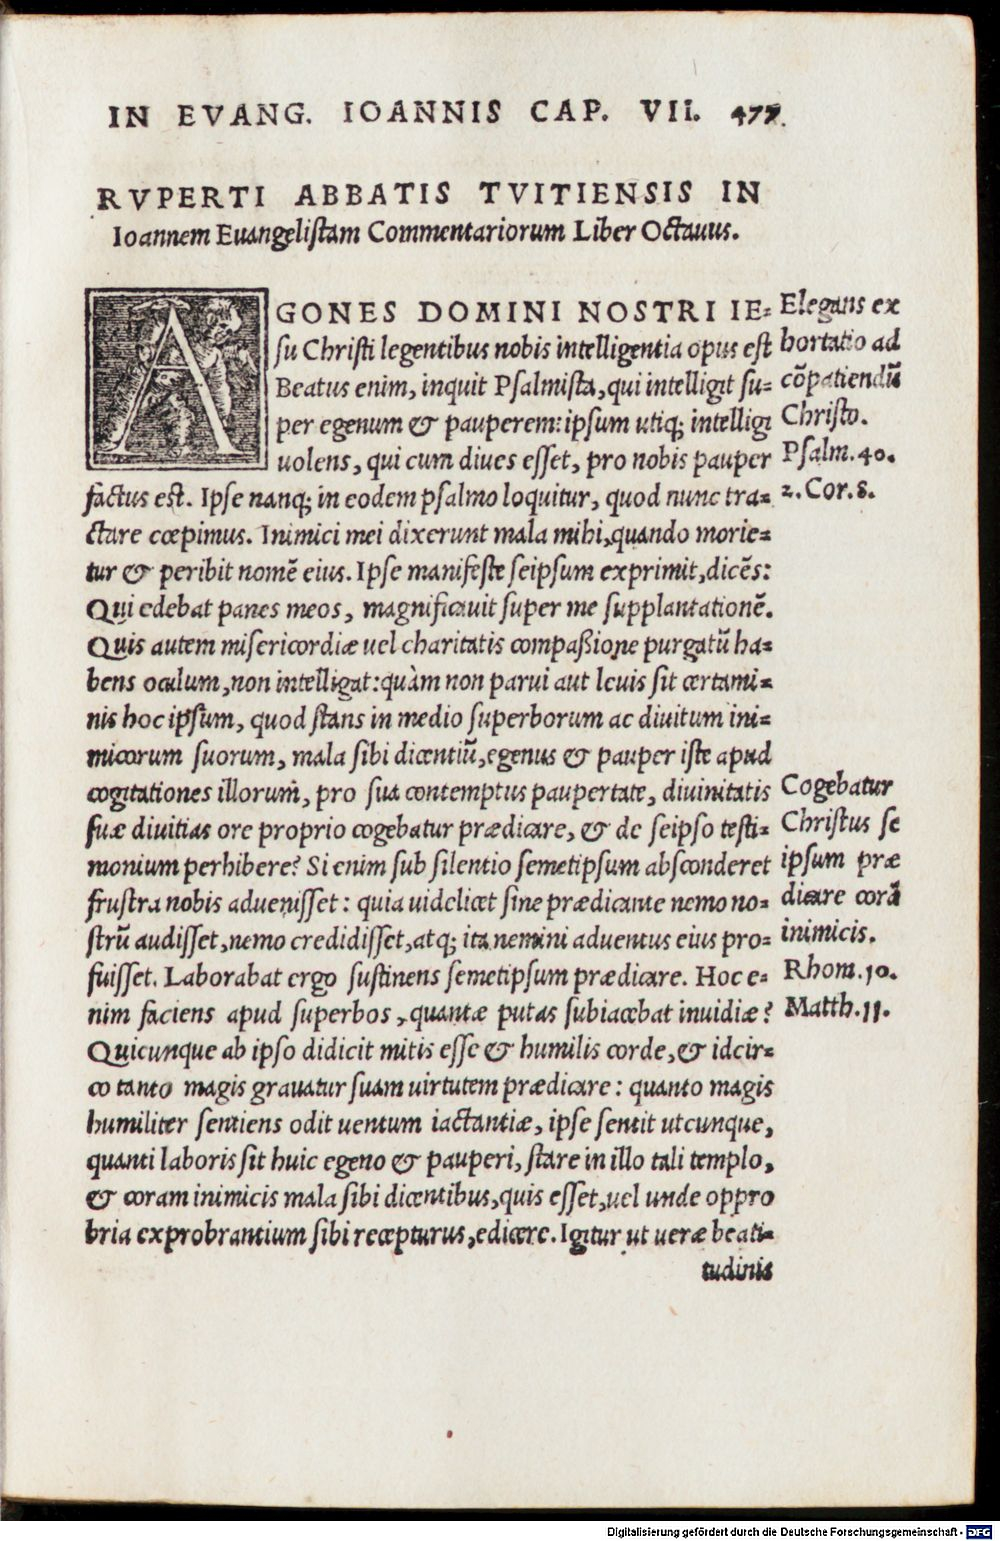 IN EVANG. IOANNIS CAP. VII. 477.
RVPERTI ABBATIS TVITIENSIS IN
Ioannem Euangelistam Commentariorum Liber Octauus.
AGONES DOMINI NOSTRI IE-
su Christi legentibus nobis intelligentia opus est
Beatus enim, inquit Psalmista, qui intelligit su-
per egenum & pauperem: ipsum utiq; intelligi
uolens, qui cum diues esset, pro nobis pauper
factus est. Ipse nanq; in eodem psalmo loquitur, quod nunc tra-
ctare cœpimus. Inimici mei dixerunt mala mihi, quando morie-
tur & peribit nomẽ eius. Ipse manifeste seipsum exprimit, dicẽs:
Qui edebat panes meos, magnificauit super me supplantationẽ.
Quis autem misericordiæ uel charitatis compaßione purgatũ ha-
bens oculum, non intelligat: quàm non parui aut leuis sit certami-
nis hoc ipsum, quod stans in medio superborum ac diuitum ini-
micorum suorum, mala sibi dicentiũ, egenus & pauper iste apud
cogitationes illorum, pro sua contemptus paupertate, diuinitatis
suæ diuitias ore proprio cogebatur prædicare, & de seipso testi-
monium perhibere? Si enim sub silentio semetipsum absconderet
frustra nobis aduenisset: quia uidelicet sine prædicante nemo no-
strũ audisset, nemo credidisset, atq; ita nemini aduentus eius pro-
fuisset. Laborabat ergo sustinens semetipsum prædicare. Hoc e-
nim faciens apud superbos, quantæ putas subiacebat inuidiæ?
Quicunque ab ipso didicit mitis esse & humilis corde, & idcir-
co tanto magis grauatur suam uirtutem prædicare: quanto magis
humiliter sentiens odit uentum iactantiæ, ipse sentit utcunque,
quanti laboris sit huic egeno & pauperi, stare in illo tali templo,
& coram inimicis mala sibi dicentibus, quis esset, uel unde oppro
bria exprobrantium sibi recepturus, edicere. Igitur ut ueræ beati-
tudinis
Elegans ex
hortatio ad
cõpatiendũ
Christo.
Psalm. 40.
2. Cor. 8.
Cogebatur
Christus se
ipsum præ
dicare corã
inimicis.
Rhom. 10.
Matth. 11.
Digitalisierung gefördert durch die Deutsche Forschungsgemeinschaft - DFG